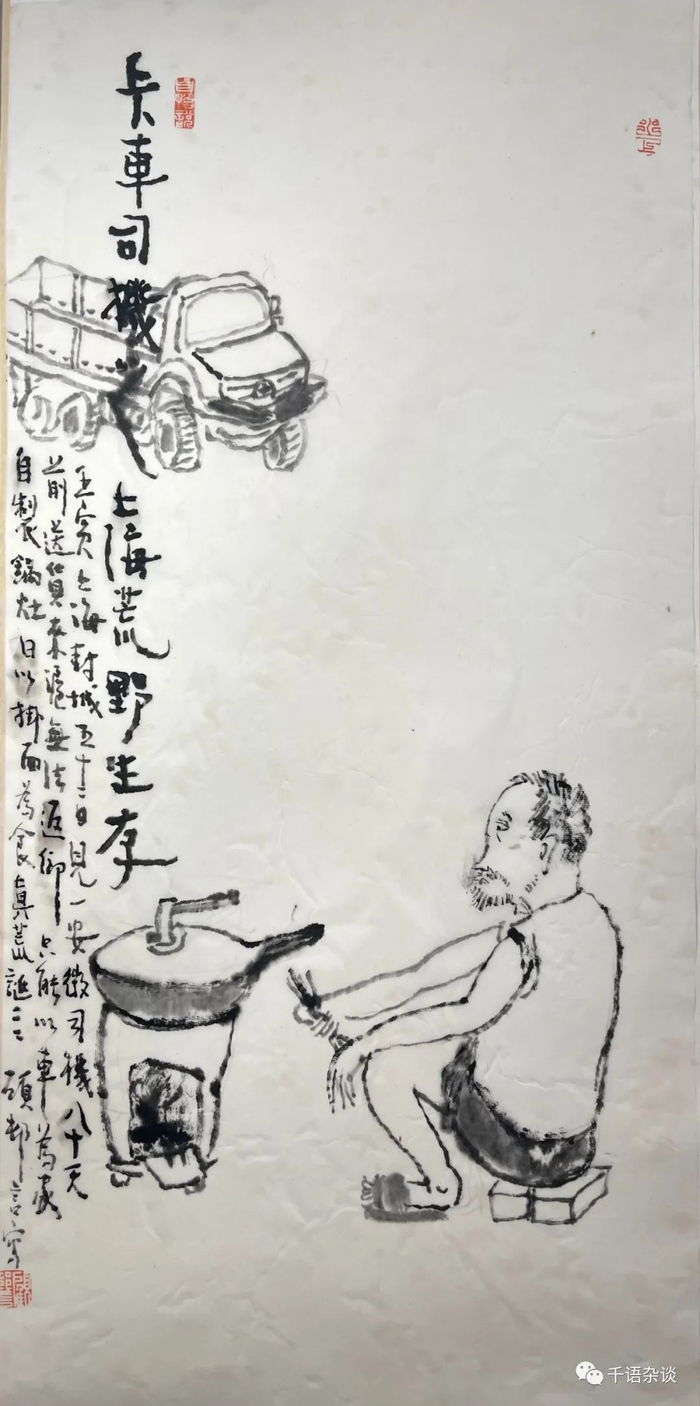 卡車司機之
上海荒野生存
壬寅上海封城五十二日見一安徽司機八十天
前送貨來滬無法返鄉只能以車為家
自製鍋灶日以掛面為食真荒誕
千语杂谈